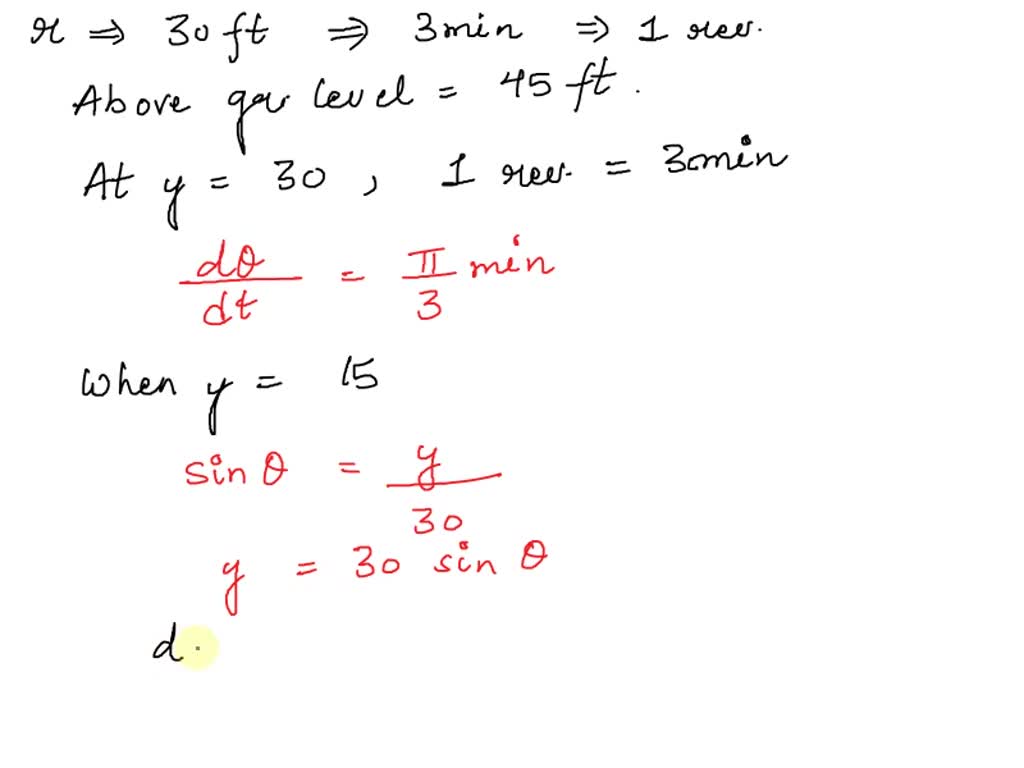 r ⇒ 30 ft ⇒ 3 min ⇒ 1 rev.
Above gar level = 45 ft.
At y = 30 , 1 rev. = 30min
dθ/dt = π/3 min
When y = 15
sin θ = y/30
y = 30 sin θ
d